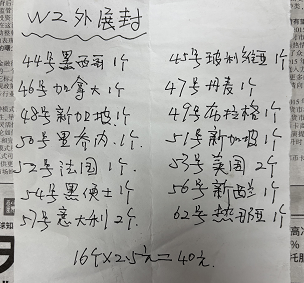 WZ外展封
44号墨西哥1个 45号玻利维亚1个
46号加拿大1个 47号丹麦1个
48号新加坡1个. 49号布拉格1个
50号里乔内1个. 51号新加坡1个
52号法国1个 53号美国2个
54号黑德士1个 56号新西兰1个
57号意大利2个. 62号热那亚1个
16个×2.5元=40元.